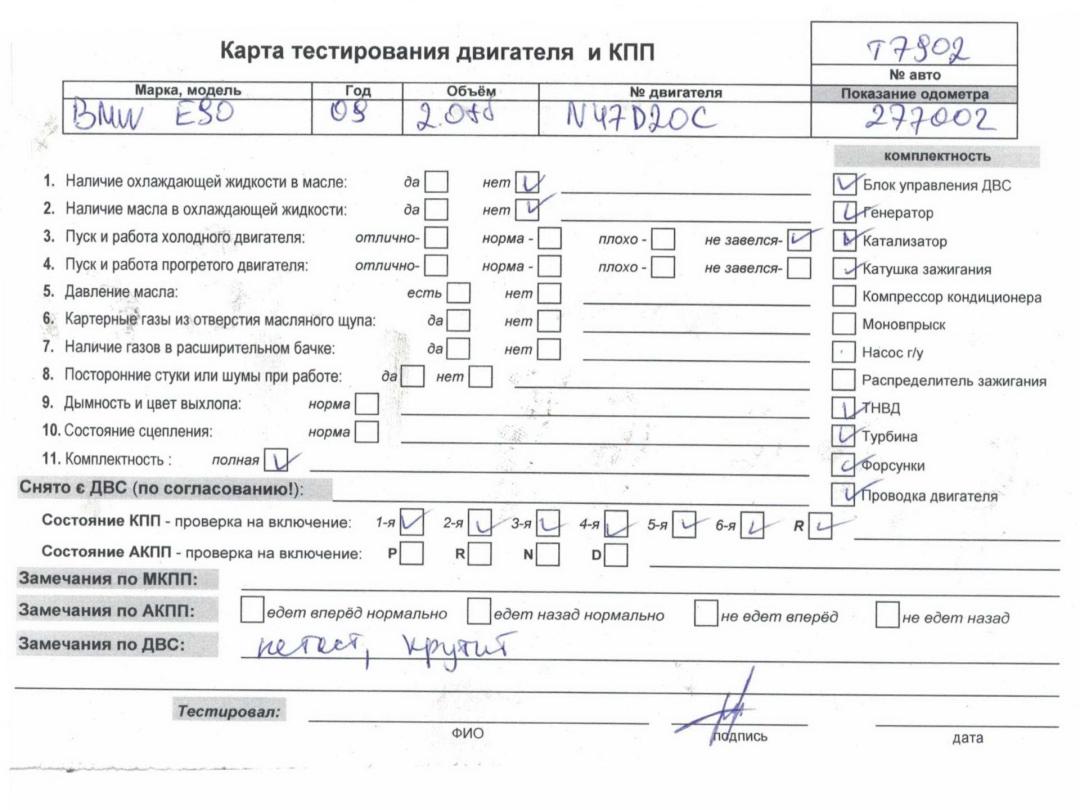 Карта тестирования двигателя и КПП
T7902
№ авто
Марка, модель Год Объём № двигателя Показание одометра
BMW E90 09 2.0td N47D20C 277002
комплектность
1. Наличие охлаждающей жидкости в масле: да нет
Блок управления ДВС
2. Наличие масла в охлаждающей жидкости: да нет
Генератор
3. Пуск и работа холодного двигателя: отлично- норма - плохо - не завелся-
Катализатор
4. Пуск и работа прогретого двигателя: отлично- норма - плохо - не завелся-
Катушка зажигания
5. Давление масла: есть нет
Компрессор кондиционера
6. Картерные газы из отверстия масляного щупа: да нет
Моновпрыск
7. Наличие газов в расширительном бачке: да нет
Насос г/у
8. Посторонние стуки или шумы при работе: да нет
Распределитель зажигания
9. Дымность и цвет выхлопа: норма
ТНВД
10. Состояние сцепления: норма
Турбина
11. Комплектность : полная
Форсунки
Снято с ДВС (по согласованию!):
Проводка двигателя
Состояние КПП - проверка на включение: 1-я 2-я 3-я 4-я 5-я 6-я R
Состояние АКПП - проверка на включение: P R N D
Замечания по МКПП:
Замечания по АКПП: едет вперёд нормально едет назад нормально не едет вперёд не едет назад
Замечания по ДВС: нетест, крутит
Тестировал:
ФИО подпись дата